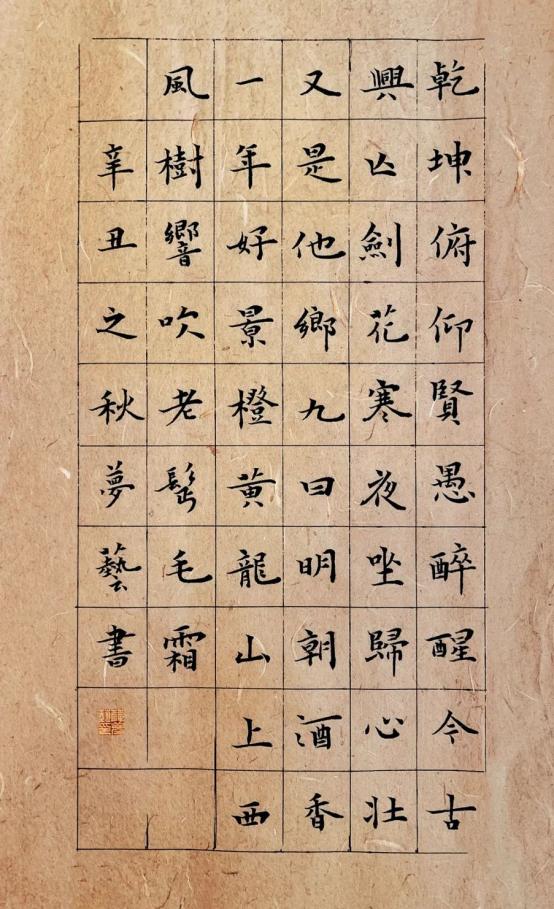 乾坤俯仰賢愚醉醒今古
興亾劍花寒夜坐歸心壯
又是他鄉九日明朝酒香
一年好景橙黄龍山上西
風樹響吹老鬢毛霜
辛丑之秋夢藝書